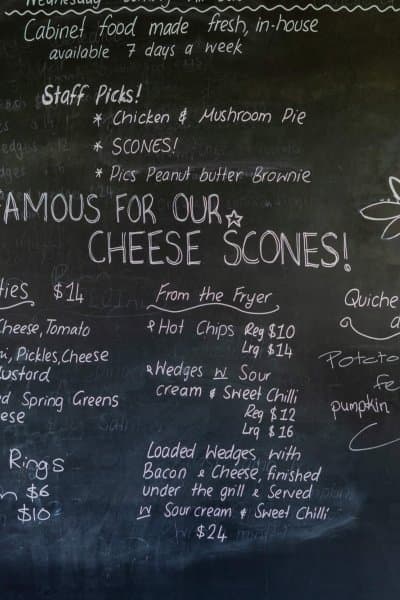 Cabinet food made fresh, in-house
available 7 days a week
Staff Picks!
* Chicken & Mushroom Pie
* SCONES!
* Pics Peanut butter Brownie
FAMOUS FOR OUR
CHEESE SCONES!
$14
Cheese, Tomato
Pickles, Cheese
Mustard
Spring Greens
Rings
$6
$10
From the Fryer
Hot Chips Reg $10
Lrg $14
Wedges w Sour
cream & Sweet Chilli
Reg $12
Lrg $16
Loaded Wedges, with
Bacon & Cheese, finished
under the grill & Served
w Sour cream & Sweet Chilli
$24
Quiche
Potato
pumpkin